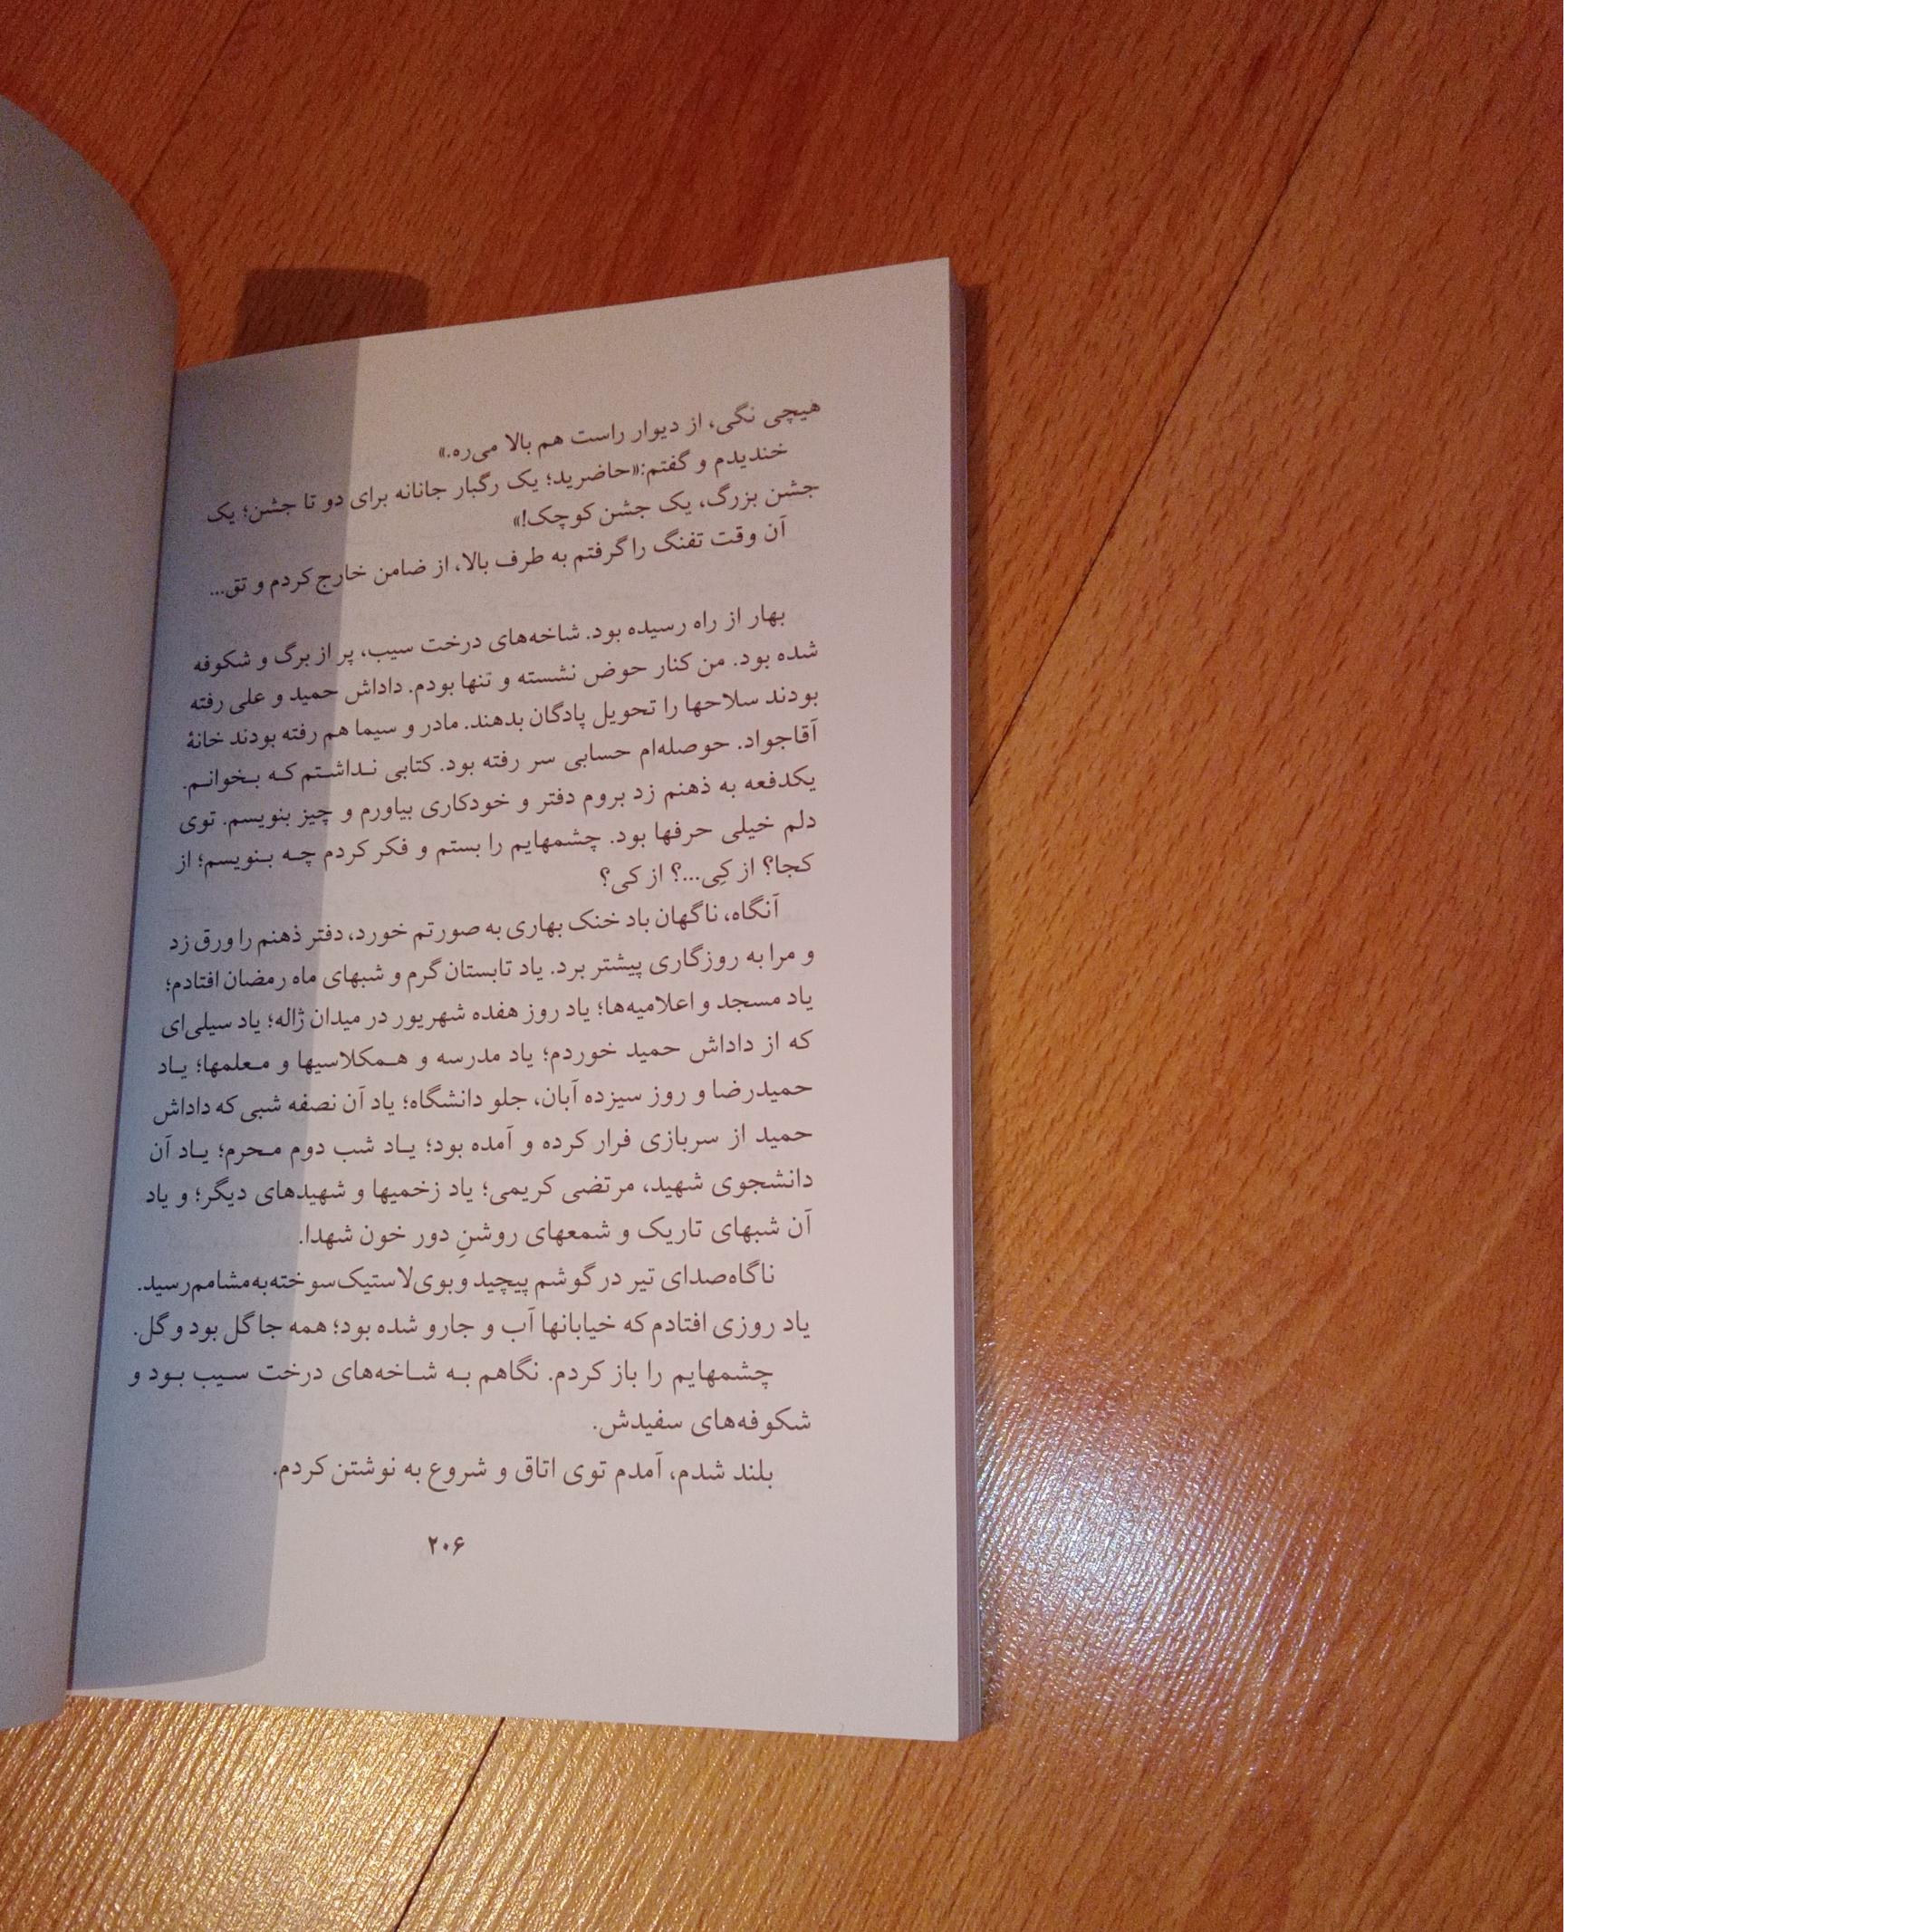 هیچی نگی، از دیوار راست هم بالا می‌ره.»
خندیدم و گفتم:«حاضرید؛ یک رگبار جانانه برای دو تا جشن؛ یک
جشن بزرگ، یک جشن کوچک!»
آن وقت تفنگ را گرفتم به طرف بالا، از ضامن خارج کردم و تق...
بهار از راه رسیده بود. شاخه‌های درخت سیب، پر از برگ و شکوفه
شده بود. من کنار حوض نشسته و تنها بودم. داداش حمید و علی رفته
بودند سلاحها را تحویل پادگان بدهند. مادر و سیما هم رفته بودند خانهٔ
آقاجواد. حوصله‌ام حسابی سر رفته بود. کتابی نداشتم که بخوانم.
یکدفعه به ذهنم زد بروم دفتر و خودکاری بیاورم و چیز بنویسم. توی
دلم خیلی حرفها بود. چشمهایم را بستم و فکر کردم چه بنویسم؛ از
کجا؟ از کِی...؟ از کی؟
آنگاه، ناگهان باد خنک بهاری به صورتم خورد، دفتر ذهنم را ورق زد
و مرا به روزگاری پیشتر برد. یاد تابستان گرم و شبهای ماه رمضان افتادم؛
یاد مسجد و اعلامیه‌ها؛ یاد روز هفده شهریور در میدان ژاله؛ یاد سیلی‌ای
که از داداش حمید خوردم؛ یاد مدرسه و همکلاسیها و معلمها؛ یاد
حمیدرضا و روز سیزده آبان، جلو دانشگاه؛ یاد آن نصفه شبی که داداش
حمید از سربازی فرار کرده و آمده بود؛ یاد شب دوم محرم؛ یاد آن
دانشجوی شهید، مرتضی کریمی؛ یاد زخمیها و شهیدهای دیگر؛ و یاد
آن شبهای تاریک و شمعهای روشنِ دور خون شهدا.
ناگاه صدای تیر در گوشم پیچید و بوی لاستیک سوخته به مشامم رسید.
یاد روزی افتادم که خیابانها آب و جارو شده بود؛ همه جا گل بود و گل.
چشمهایم را باز کردم. نگاهم به شاخه‌های درخت سیب بود و
شکوفه‌های سفیدش.
بلند شدم، آمدم توی اتاق و شروع به نوشتن کردم.
۲۰۶